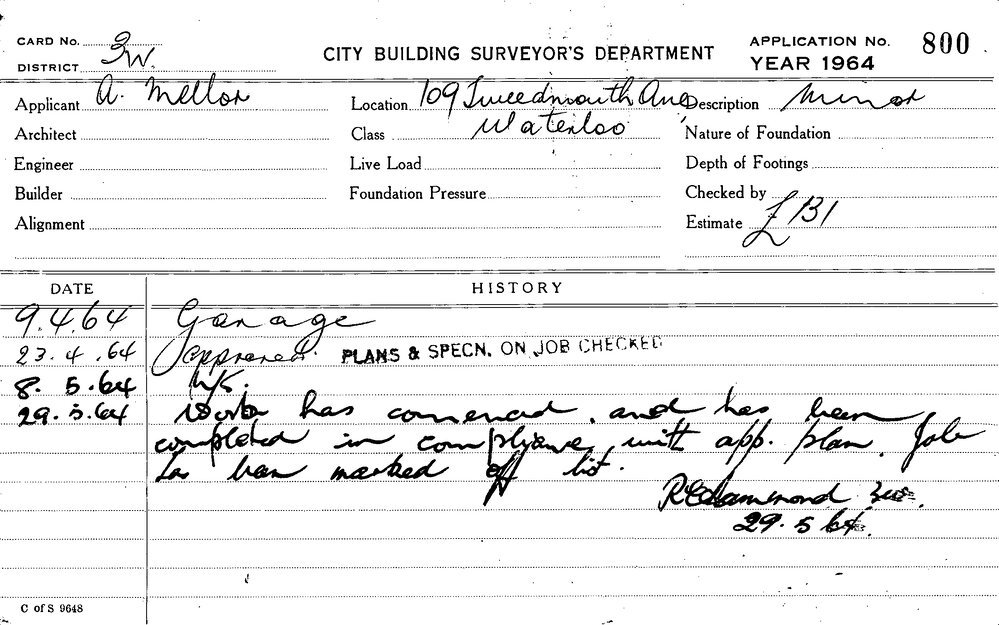 CARD No.
DISTRICT 3W.
CITY BUILDING SURVEYOR'S DEPARTMENT
APPLICATION No. 800
YEAR 1964
Applicant A. Mellor
Location 109 Tweedmouth Ave
Description Minor
Architect
Class Waterloo
Nature of Foundation
Engineer
Live Load
Depth of Footings
Builder
Foundation Pressure
Checked by
Alignment
Estimate £131
DATE
HISTORY
9.4.64 Garage
23.4.64 Approved. PLANS & SPECN. ON JOB CHECKED
8.5.64 N/S.
29.5.64 Work has comenced and has been
completed in complyance with app. plan. Job
has been marked off list.
R E Hammond 3W.
29.5.64.
C of S 9648